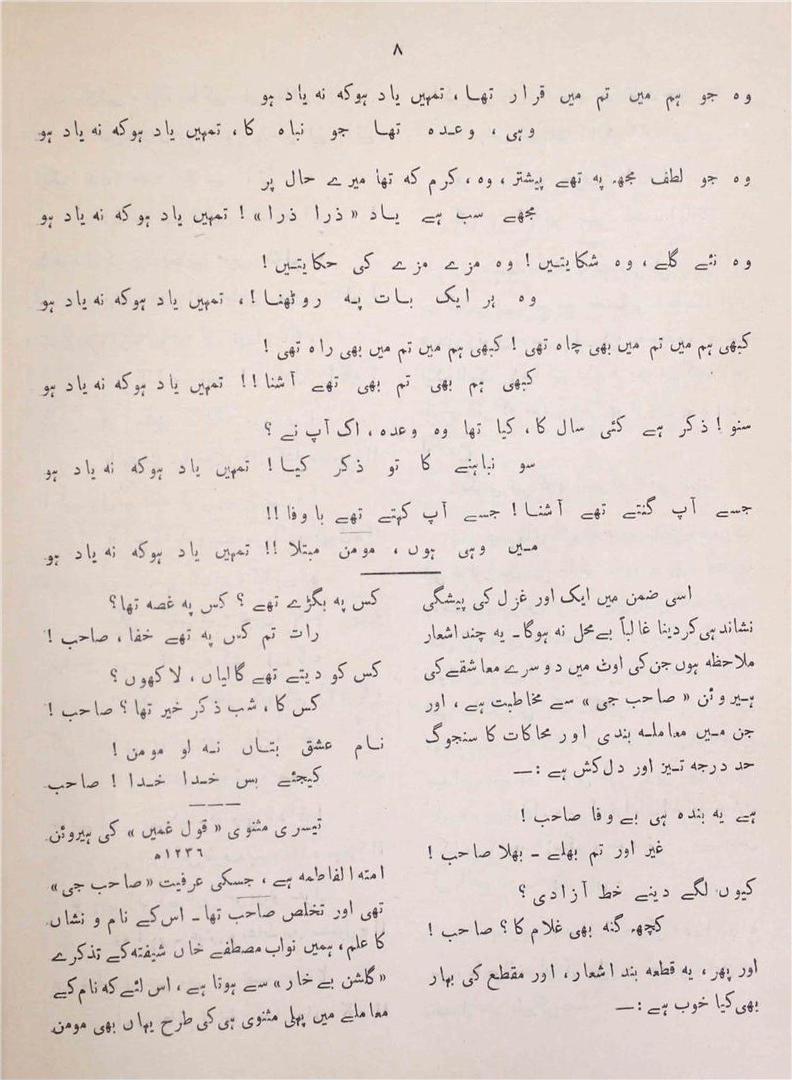 ۸
وہ جو ہم میں تم میں قرار تھا، تمہیں یاد ہوکہ نہ یاد ہو
وہی، وعدہ تھا جو نباہ کا، تمہیں یاد ہوکہ نہ یاد ہو
وہ جو لطف مجھ پہ تھے پیشتر، وہ، کرم کہ تھا میرے حال پر
مجھے سب ہے یاد «ذرا ذرا»! تمہیں یاد ہوکہ نہ یاد ہو
وہ نئے گلے، وہ شکایتیں! وہ مزے مزے کی حکایتیں!
وہ ہر ایک بات پہ روٹھنا!، تمہیں یاد ہوکہ نہ یاد ہو
کبھی ہم میں تم میں بھی چاہ تھی! کبھی ہم میں تم میں بھی راہ تھی!
کبھی ہم بھی تم بھی تھے آشنا!! تمہیں یاد ہوکہ نہ یاد ہو
سنو! ذکر ہے کئی سال کا، کیا تھا وہ وعدہ، اک آپ نے؟
سو نباہنے کا تو ذکر کیا! تمہیں یاد ہوکہ نہ یاد ہو
جسے آپ گنتے تھے آشنا! جسے آپ کہتے تھے باوفا!!
میں وہی ہوں، مومن مبتلا!! تمہیں یاد ہوکہ نہ یاد ہو
اسی ضمن میں ایک اور غزل کی پیشگی
نشاندہی کردینا غالباً بےمحل نہ ہوگا۔ یہ چند اشعار
ملاحظہ ہوں جن کی اوٹ میں دوسرے معاشقے کی
ہیروئن «صاحب جی» سے مخاطبت ہے، اور
جن میں معاملہ بندی اور محاکات کا سنجوگ
حد درجہ تیز اور دل‌کش ہے:—
ہے یہ بندہ ہی بے وفا صاحب!
غیر اور تم بھلے ۔ بھلا صاحب!
کیوں لگے دینے خط آزادی؟
کچھ گنہ بھی غلام کا؟ صاحب!
اور پھر، یہ قطعہ بند اشعار، اور مقطع کی بہار
بھی کیا خوب ہے:—
کس پہ بگڑے تھے؟ کس پہ غصہ تھا؟
رات تم کس پہ تھے خفا، صاحب!
کس کو دیتے تھے گالیاں، لاکھوں؟
کس کا، شب ذکر خیر تھا؟ صاحب!
نام عشق بتاں نہ لو مومن!
کیجئے بس خدا خدا! صاحب
تیسری مثنوی «قول غمیں» کی ہیروئن
۱۲۳۶ھ
امتہ الفاطمہ ہے، جسکی عرفیت «صاحب جی»
تھی اور تخلص صاحب تھا۔ اس کے نام و نشاں
کا علم، ہمیں نواب مصطفےٰ خاں شیفتہ کے تذکرے
«گلشن بے خار» سے ہوتا ہے، اس لئے کہ نام کے
معاملے میں پہلی مثنوی ہی کی طرح یہاں بھی مومن